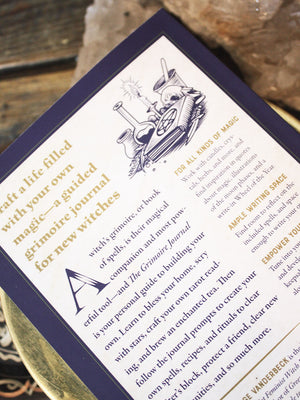 raft a life filled
with your own
magic—a guided
grimoire journal
for new witches
A witch's grimoire, or book
of spells, is their magical
companion and most pow-
erful tool—and The Grimoire Journal
is your personal guide to building your
own. Learn to bless your home, scry
with stars, craft your own tarot read-
ing, and brew an enchanted tea. Then
follow the journal prompts to create your
own spells, recipes, and rituals to clear
er's block, protect a friend, clear new
nities, and so much more.
FOR ALL KINDS OF MAGIC
Work with candles, crys-
tals, herbs, and more, and
find inspiration in quotes
about magic, illustrations
of the moon phases, and a
write-in Wheel of the Year.
AMPLE WRITING SPACE
Find room to reflect on the
included spells, and space
enough to write your
EMPOWER YOU
Tune into
and
DE VANDERBECK